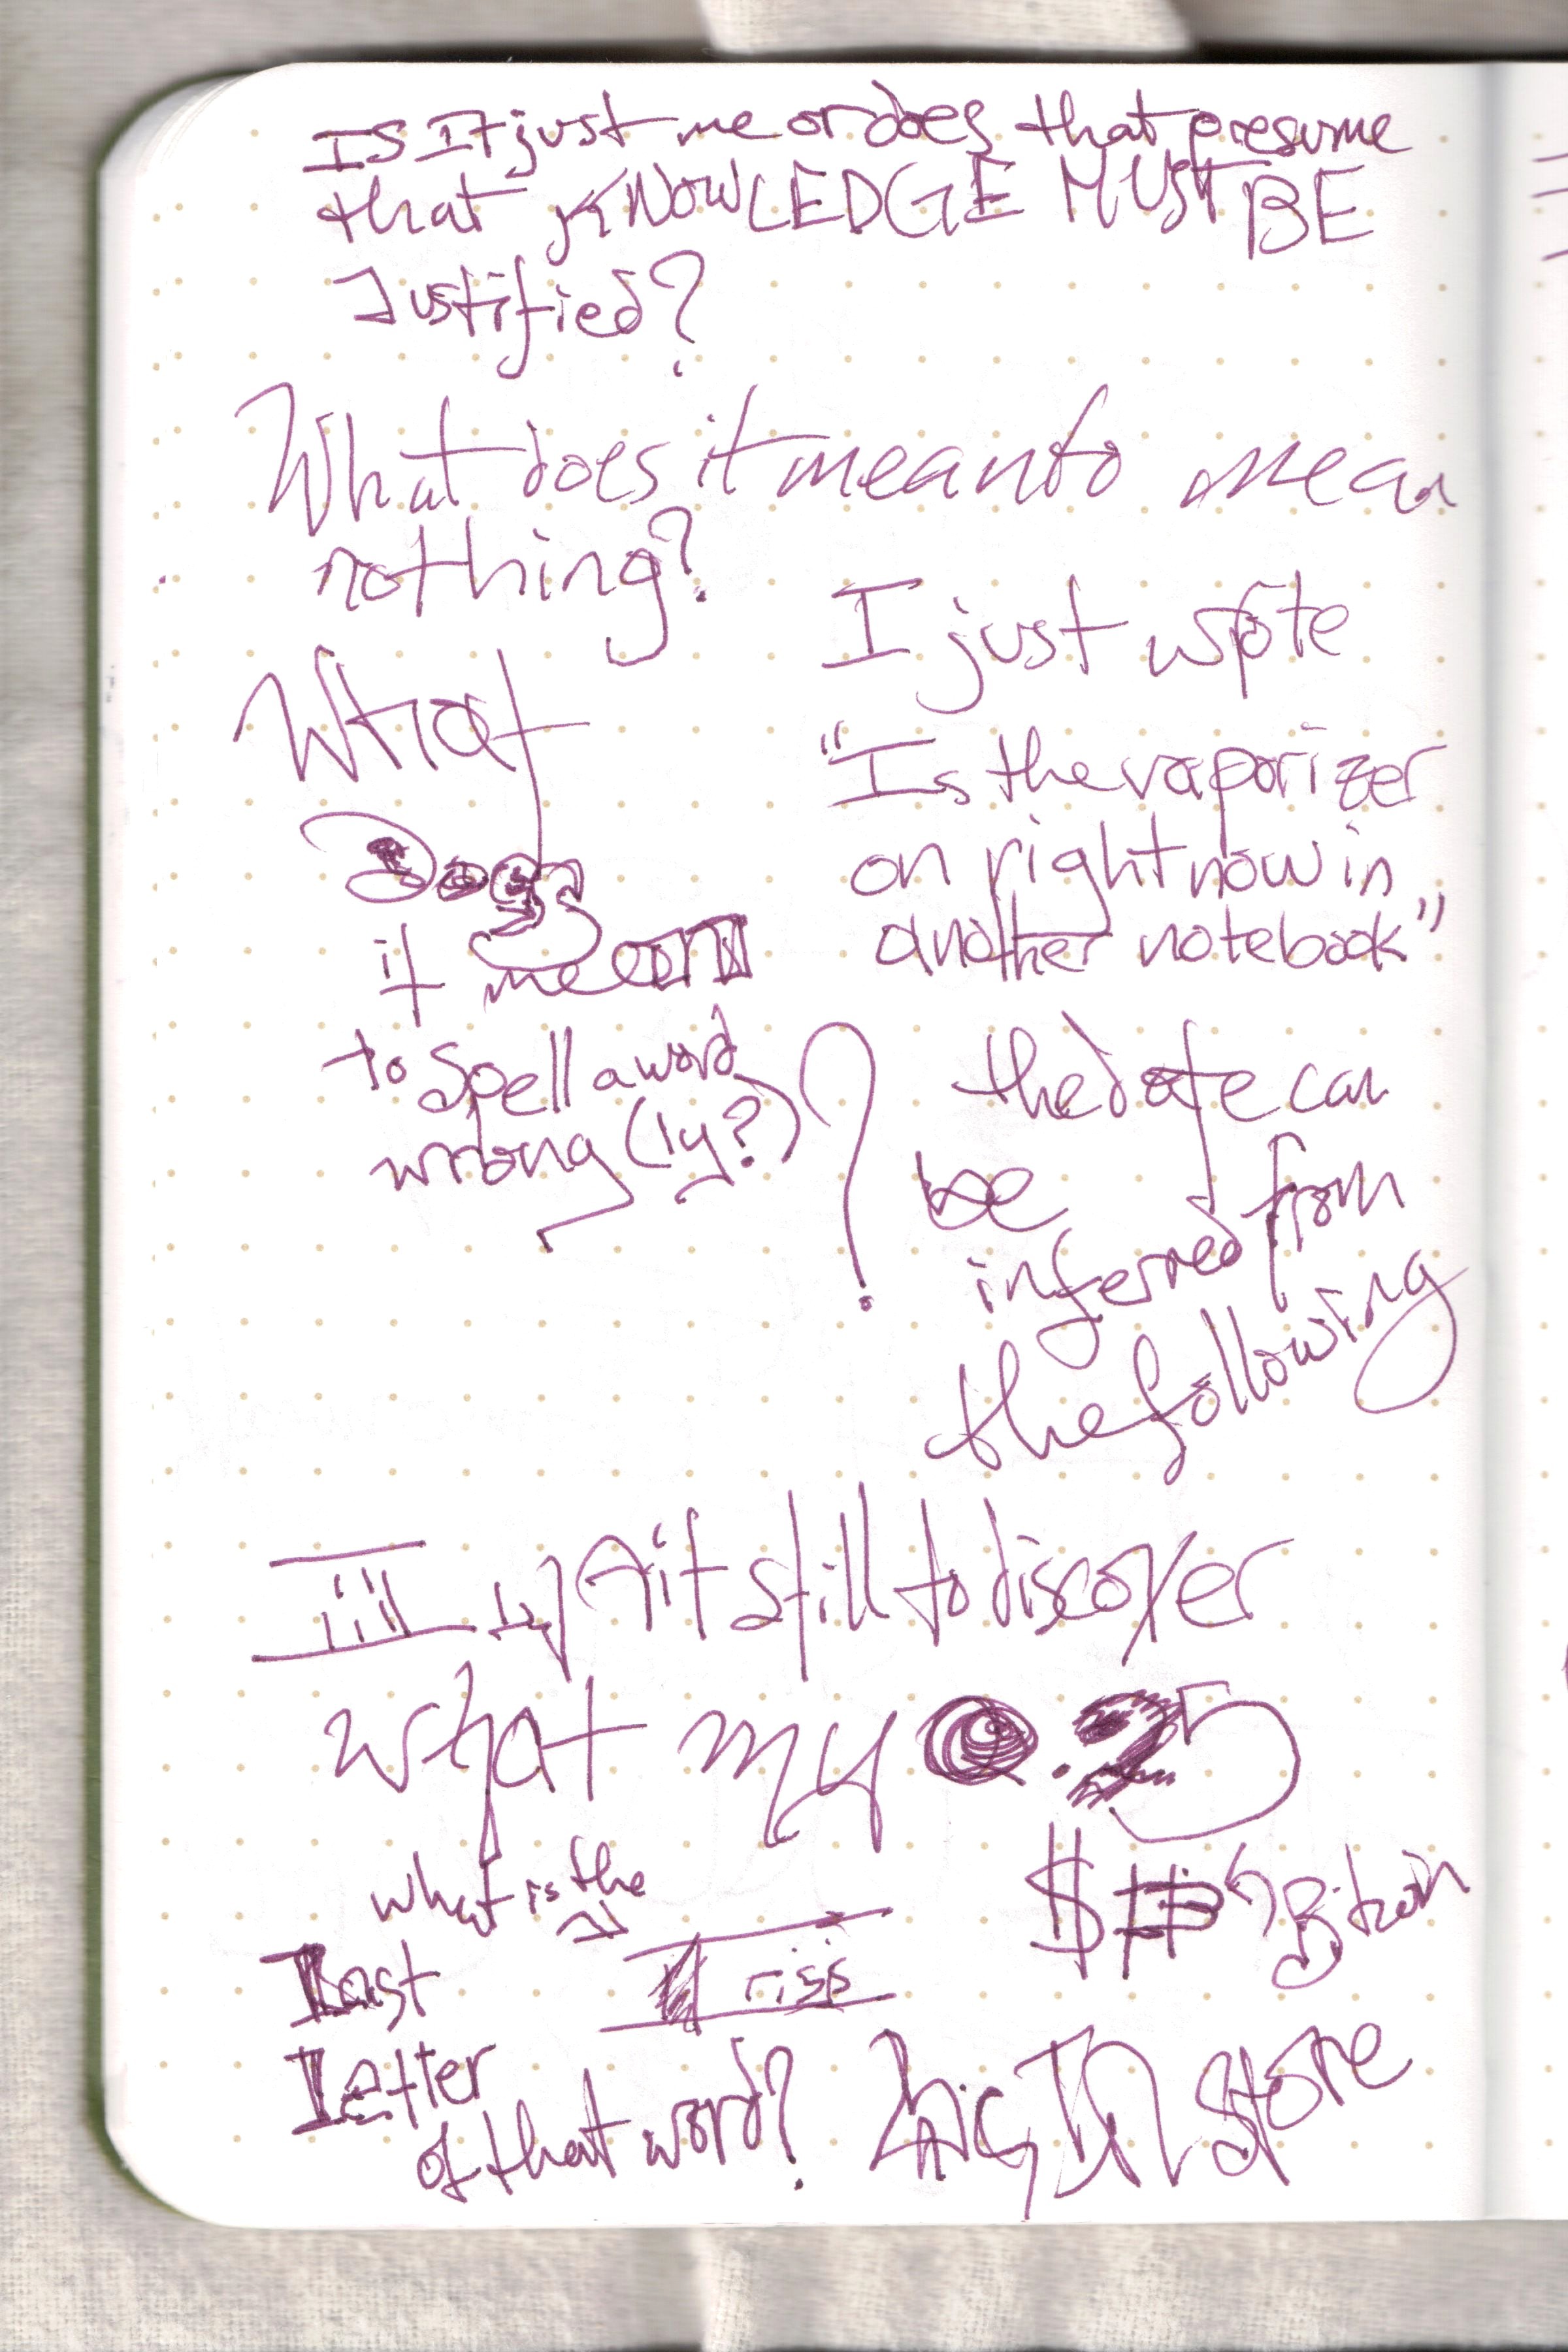 Is It just me or does that presume
that KNOWLEDGE MUST BE
Justified?
What does it mean to mean
nothing?
What
Does
it mean
to spell a word
wrong (ly?)
?
I just wrote
"Is the vaporizer
on right now in
another notebook"
the date can
be
inferred from
the following
it still to discover
what my .25
$ Bitcoin
what is the
Last
Letter
of that word?
in store